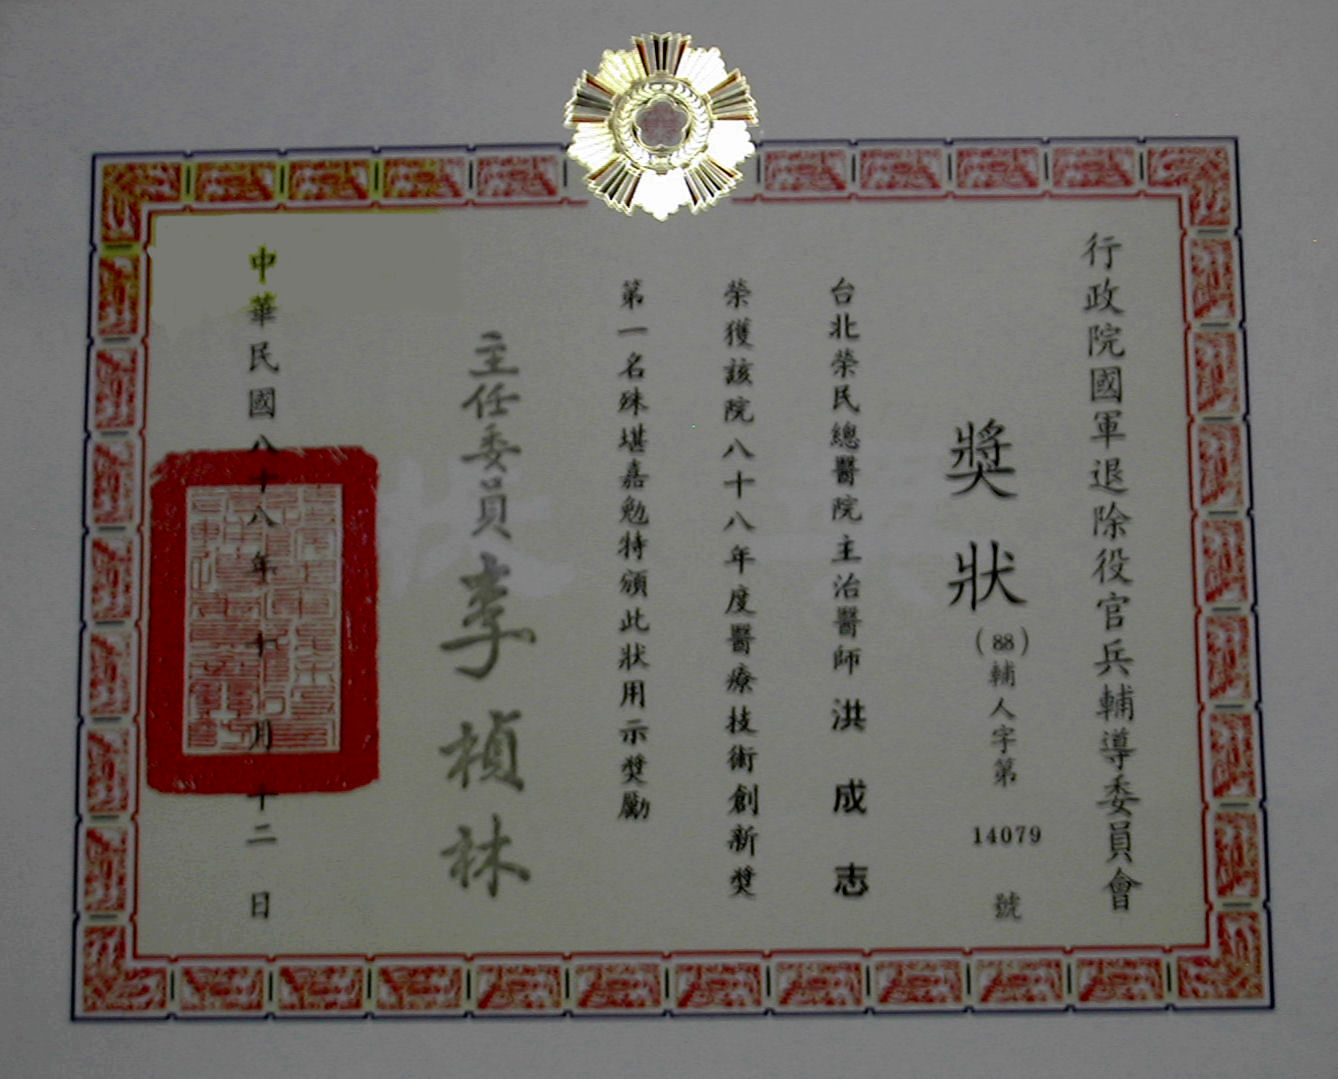 行政院國軍退除役官兵輔導委員會
獎狀
(88)輔人字第 14079 號
台北榮民總醫院主治醫師 洪成志
榮獲該院八十八年度醫療技術創新獎
第一名殊堪嘉勉特頒此狀用示獎勵
主任委員 李楨林
中華民國八十八年 月十二日